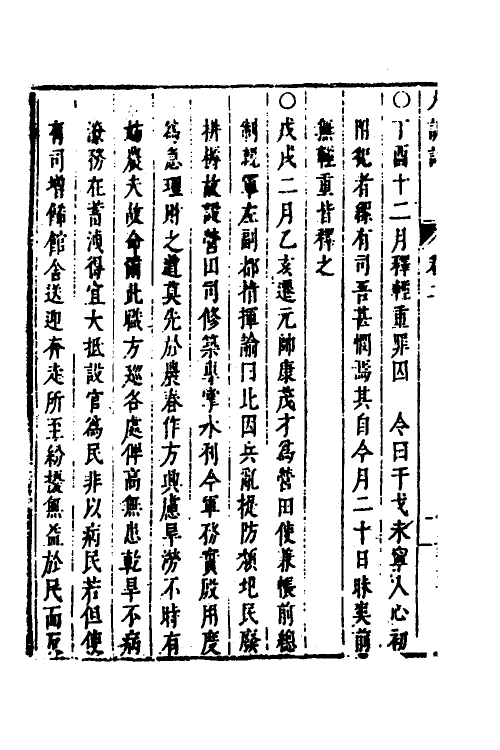 ○丁酉十二月釋輕重罪囚　令曰干戈未寧人心初
附犯者繫有司吾甚憫焉其自今月二十日昧爽前
無輕重皆釋之
○戊戌二月乙亥遷元帥康茂才為營田使兼帳前總
制親軍左副都指揮諭曰比因兵亂堤防頹圯民廢
耕耨故設營田司修築專掌水利今軍務實殷用度
為急理財之道莫先於農春作方興慮旱潦不時有
妨農夫故命爾此職方巡各處俾高無患乾旱不病
潦務在蓄洩得宜大抵設官為民非以病民若但使
有司增飾館舍送迎奔走所至紛擾無益於民而反